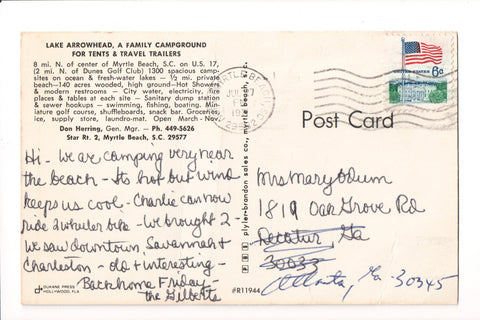 LAKE ARROWHEAD, A FAMILY CAMPGROUND
FOR TENTS & TRAVEL TRAILERS
8 mi. N. of center of Myrtle Beach, S.C. on U.S. 17,
(2 mi. N. of Dunes Golf Club) 1300 spacious camp-
sites on ocean & fresh-water lakes — ½ mi. private
beach—140 acres wooded, high ground—Hot Showers
& modern restrooms — City water, electricity, fire
places & tables at each site — Sanitary dump station
& sewer hookups — swimming, fishing, boating. Min-
iature golf course, shuffleboards, snack bar. Groceries,
ice, supply store, laundro-mat. Open March-Nov.
Don Herring, Gen. Mgr. — Ph. 449-5626
Star Rt. 2, Myrtle Beach, S.C. 29577
Hi - We are camping very near
the beach - Its hot but wind
keeps us cool - Charlie can now
ride 2 wheeler bike - We brought 2 -
We saw downtown, Savannah &
Charleston - old & interesting -
Back home Friday -
the Gilberts
DUKANE PRESS
HOLLYWOOD, FLA
plyler-brandon sales co., myrtle beach,
#R11944
MYRTLE BEACH
JUL
UNITED STATES
6c
Post Card
Mrs Mary Odum
1819 Oak Grove Rd
Decatur Ga
30033
Atlanta, Ga - 30345